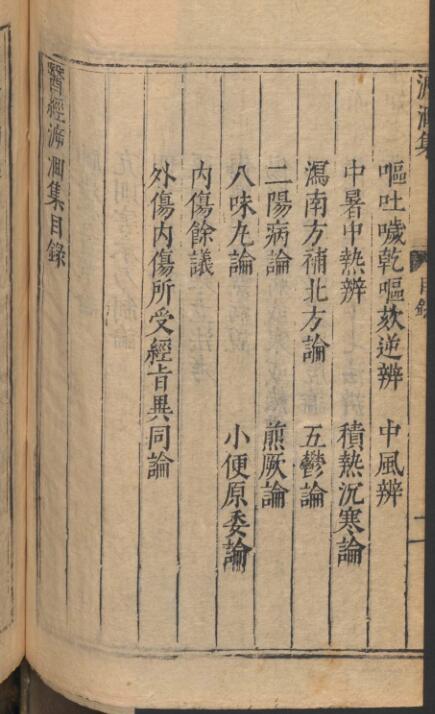 溯洄集
目錄
二
嘔吐噦乾嘔欬逆辨　中風辨
中暑中熱辨　積熱沉寒論
瀉南方補北方論　五鬱論
二陽病論　煎厥論
八味丸論　小便原委論
内傷餘議
外傷内傷所受經旨異同論
醫經溯洄集目錄